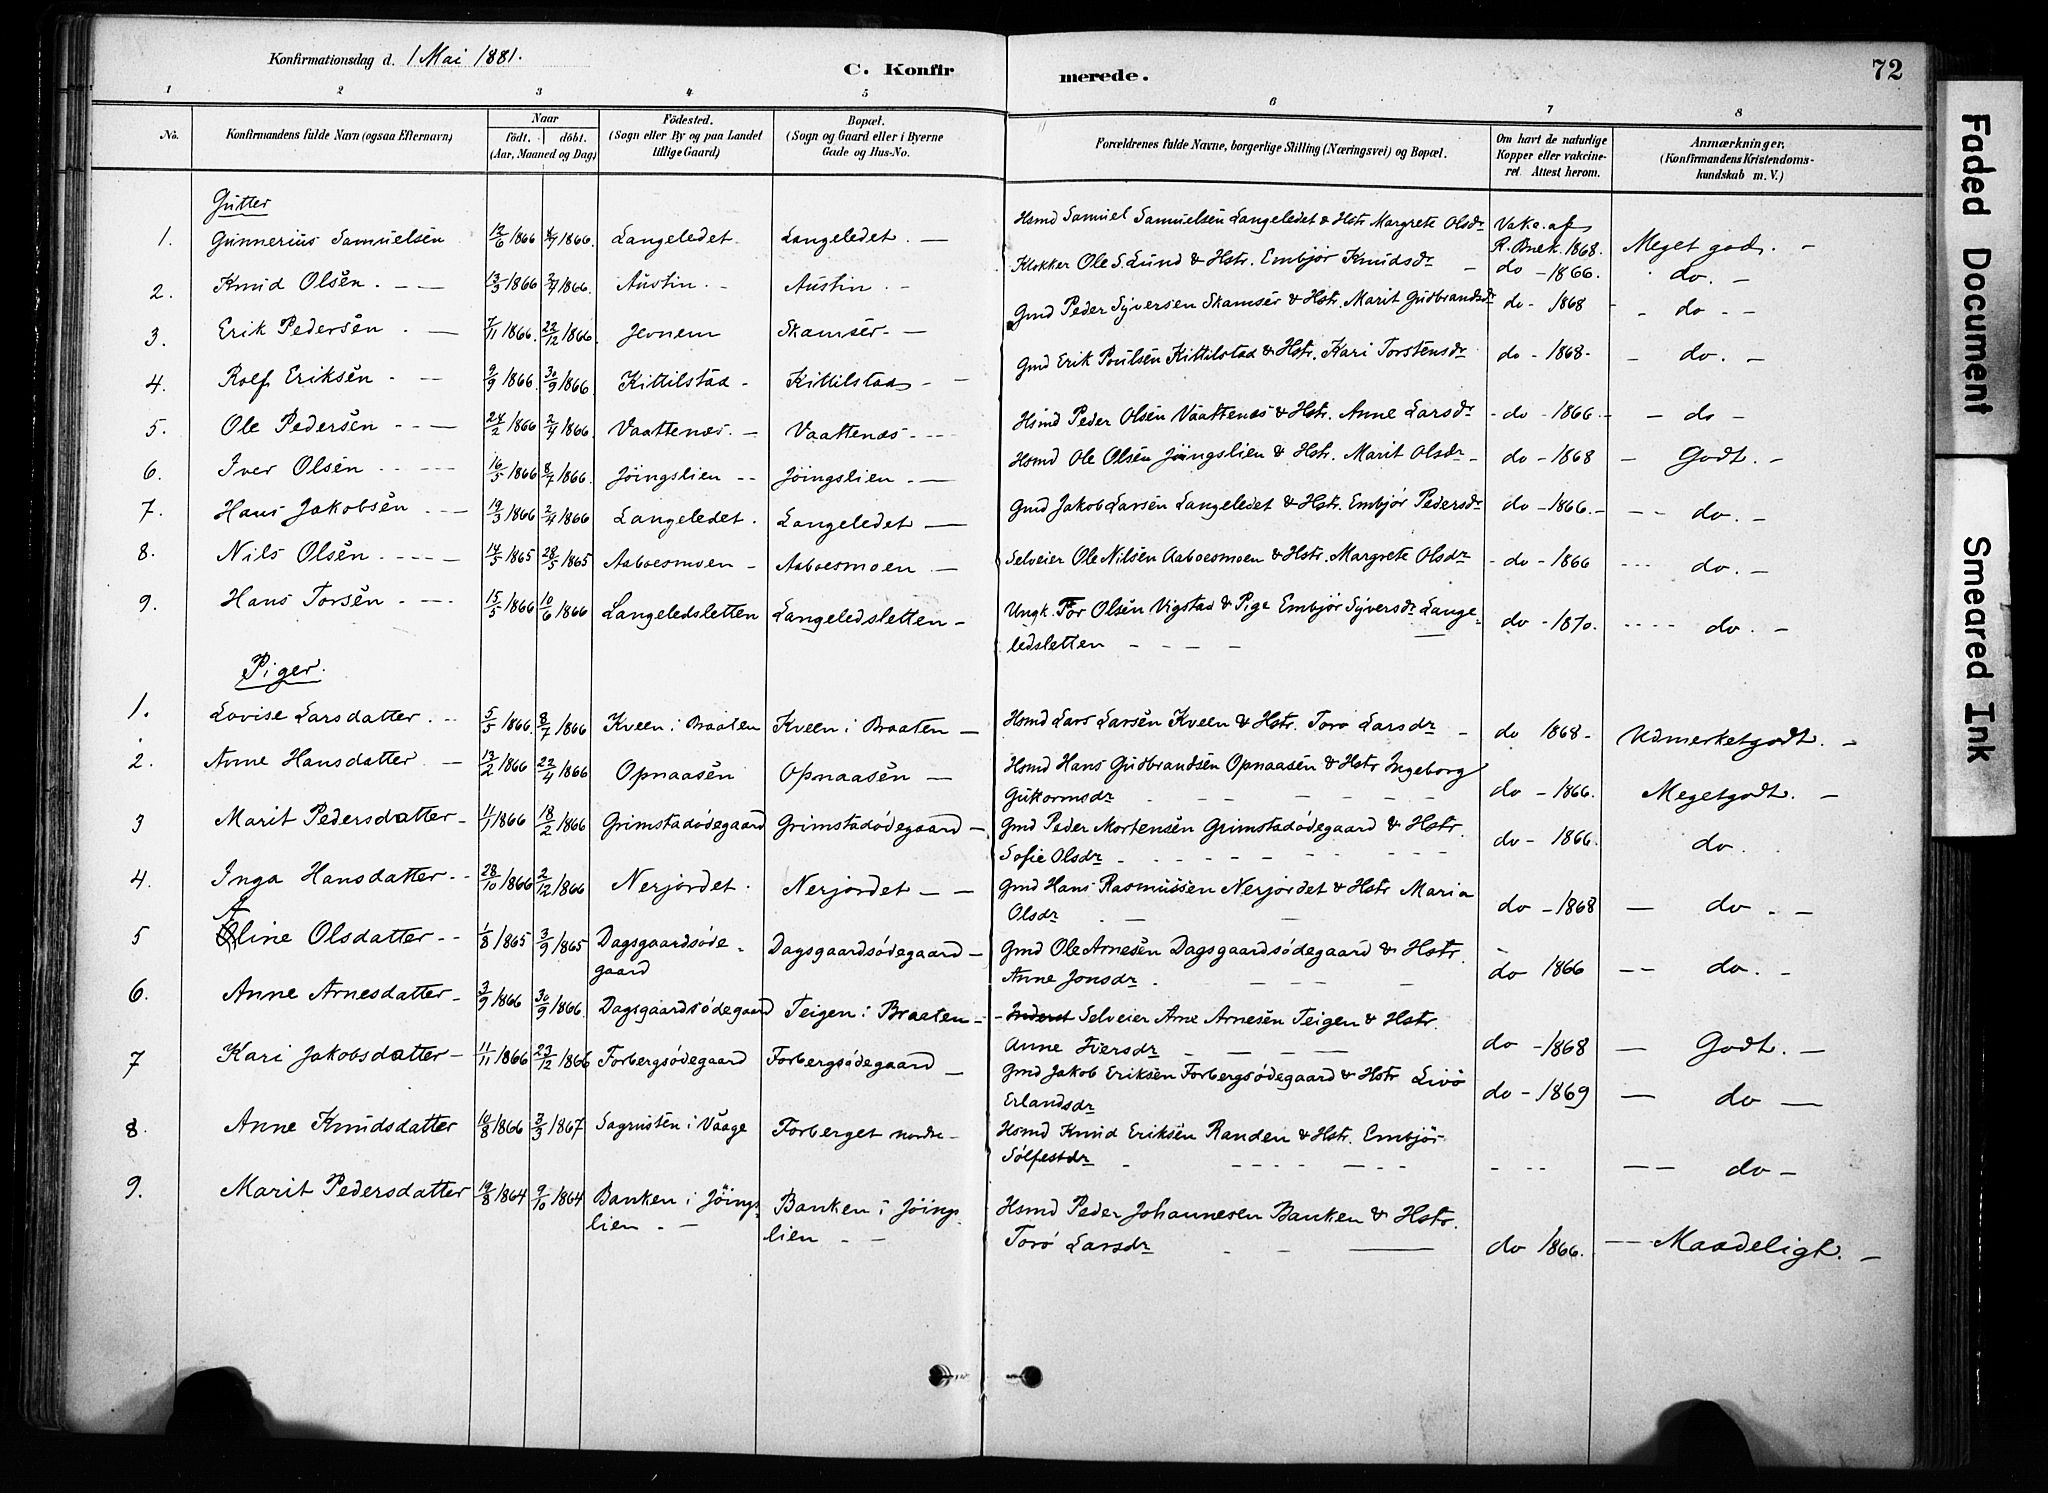 Konfirmationsdag d. 1 Mai 1881.
C. Konfir merede. 72
1 2 3 4 5 6 7 8
No. Konfirmandens fulde Navn (ogsaa Efternavn) Naar födt. döbt. (Aar, Maaned og Dag) Födested. (Sogn eller By og paa Landet tillige Gaard) Bopæl. (Sogn og Gaard eller i Byerne Gade og Hus-No. Forældrenes fulde Navne, borgerlige Stilling (Næringsvei) og Bopæl. Om havt de naturlige Kopper eller vakcineret. Attest herom. Anmærkninger, (Konfirmandens Kristendomskundskab m. V.)
Gutter
1. Gunnerius Samuelsen 12/6 1866 8/7 1866. Langeledet Langeledet. Hsmd Samuel Samuelsen Langeledet & Hstr Margrete Olsdr Vakc. af R. Bæk. 1868. Meget god.
2. Knud Olsen 13/3 1866 2/4 1866. Austin Austin Klokker Ole S. Lund & Hstr. Embjør Knudsdr do - 1866. do.
3. Erik Pedersen 7/11 1866. 22/12 1866. Jevnem Skamser Gmd Peder Syversen Skamser & Hstr. Marit Gudbrandsdr do - 1868 do
4. Rolf Eriksen 9/9 1866. 30/9 1866. Kittilstad Kittilstad Gmd Erik Poulsen Kittilstad & Hstr. Kari Torstensdr do - 1868 do.
5. Ole Pedersen 24/2 1866 2/4 1866. Vaattenæs Vaattenæs Hsmd Peder Olsen Vaattenæs & Hstr. Anne Larsdr do - 1866 do
6. Iver Olsen 16/5 1866 8/7 1866. Jöingslien Jöingslien Hsmd Ole Olsen Jöingslien & Hstr. Marit Olsdr do - 1868 Godt.
7. Hans Jakobsen 19/3 1866 2/4 1866 Langeledet. Langeledet Gmd Jakob Larsen Langeledet & Hstr. Embjør Pedersdr do - 1866. do.
8. Nils Olsen 14/5 1865 28/5 1865 Aaboesmoen Aaboesmoen Selveier Ole Nilsen Aaboesmoen & Hstr. Margrete Olsdr do - 1866 do.
9. Hans Torsen 15/5 1866 10/6 1866 Langeledsletten Langeledsletten Ungk. Tor Olsen Vigstad & Pige Embjør Syversdr Langeledsletten do - 1870. do.
Piger.
1. Lovise Larsdatter 5/5 1866 8/7 1866 Kveen i Braaten Kveen i Braaten Hsmd Lars Larsen Kveen & Hstr. Toro Larsdr do 1868 Udmerketgodt.
2. Anne Hansdatter 13/2 1866 22/4 1866 Opnaasen Opnaasen Hsmd Hans Gudbrandsen Opnaasen & Hstr Ingeborg Guttormsdr do - 1866. Megetgodt.
3 Marit Pedersdatter 11/1 1866 18/2 1866 Grimstadödegaard Grimstadödegaard Gmd Peder Mortensen Grimstadödegaard & Hstr. Sofie Olsdr do - 1866. do
4. Inga Hansdatter 28/10 1866 2/12 1866 Nerjordet Nerjordet Gmd Hans Rasmussen Nerjordet & Hstr Maria Olsdr do - 1868 do
5 Aline Olsdatter 1/8 1865 3/9 1865 Dagsgaardsödegaard Dagsgaardsödegaard Gmd Ole Arnesen Dagsgaardsödegaard & Hstr. Anne Jonsdr do 1866 do.
6. Anne Arnesdatter 3/9 1866 30/9 1866 Dagsgaardsödegaard Teigen i Braaten Inderst Selveier Arne Arnesen Teigen & Hstr. Anne Iversdr do - 1868 Godt.
7 Kari Jakobsdatter 11/11 1866 23/12 1866 Forbergsödegaard Forbergsödegaard Gmd Jakob Eriksen Forbergsödegaard & Hstr Livö Erlandsdr do - 1869 do
8. Anne Knudsdatter 10/8 1866 3/3 1867 i Vaage Forberget nordre Hsmd Knud Eriksen Randen & Hstr. Embjör Sölfestdr do
9. Marit Pedersdatter 19/8 1864 9/10 1864 Banken i Jöingslien Banken i Jöingslien Hsmd Peder Johannesen Banken & Hstr. Torö Larsdr do 1866. Maadeligt.
Faded Document
Smeared Ink